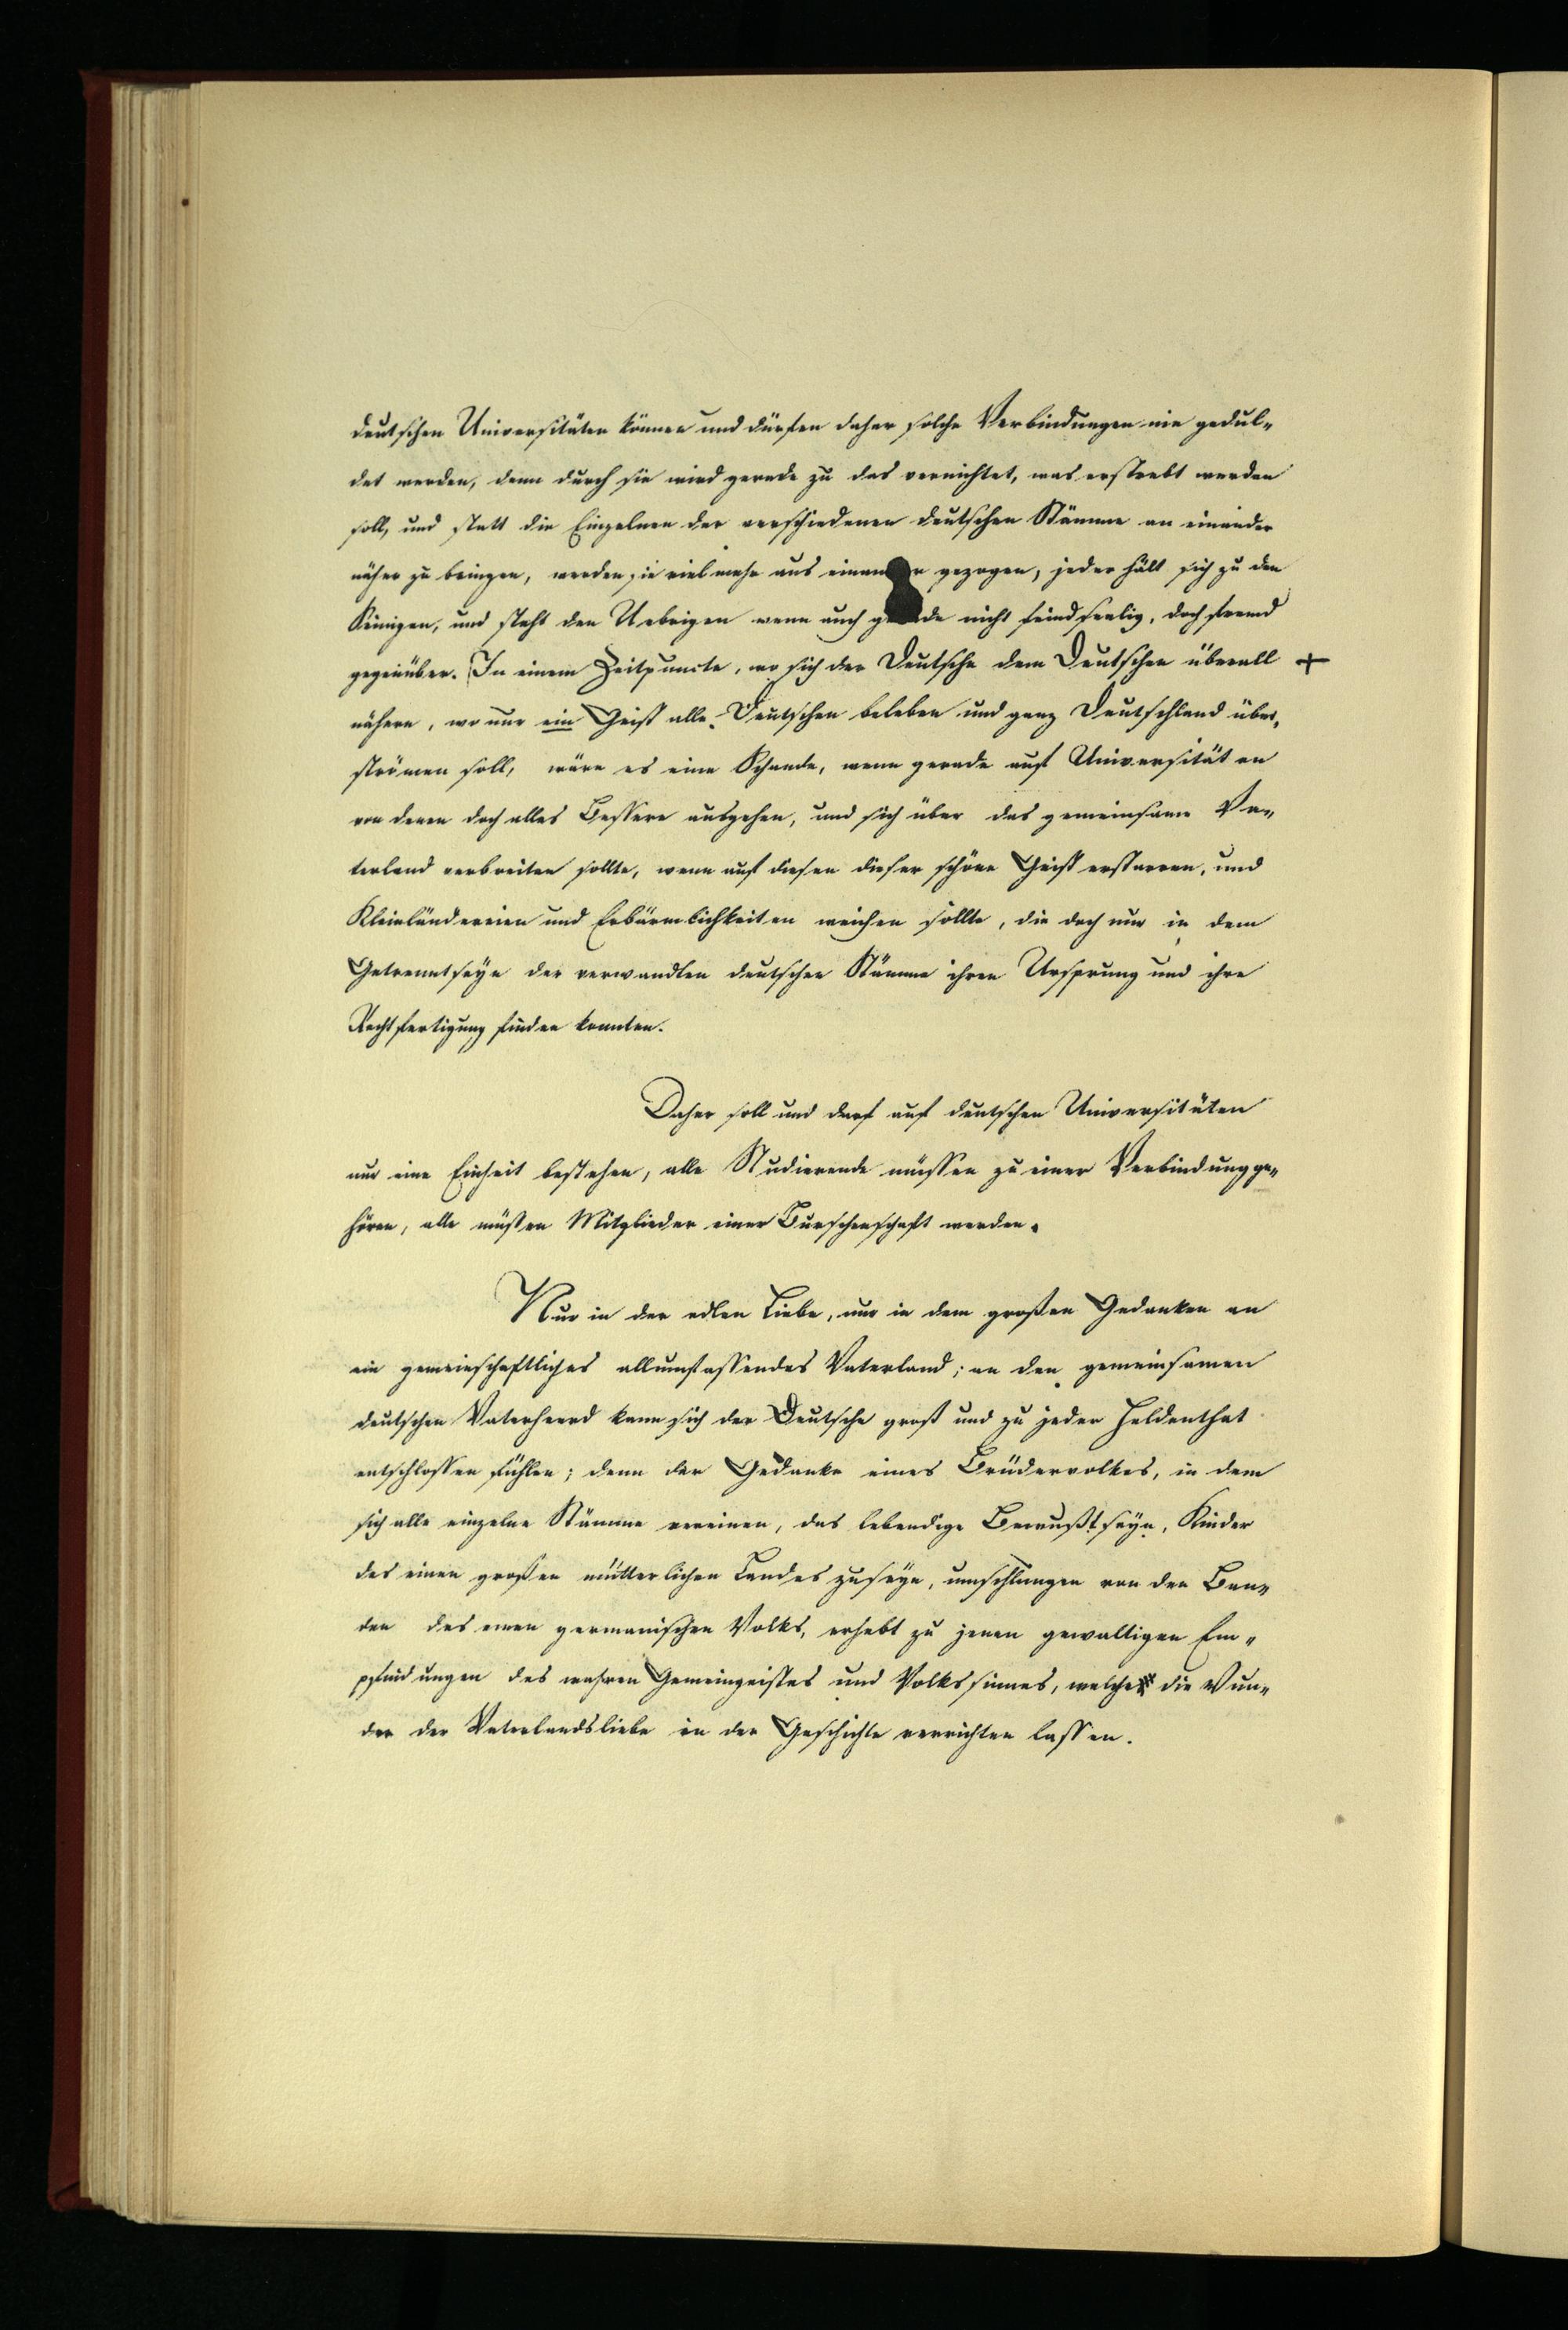 deutschen Universitäten können und dürfen daher solche Verbindungen nie gedul-
det werden, denn durch sie wird gerade zu das vernichtet, was erstrebt werden
soll, und statt die Einzelnen der verschiedenen deutschen Stämme an einander
näher zu bringen, werden sie viel mehr aus einander gezogen, jeder hält sich zu den
Seinigen, und steht den Uebrigen wenn auch gerade nicht feindseelig, doch fremd
gegenüber. In einem Zeitpuncte, wo sich der Deutsche dem Deutschen überall +
nähern, wo nur ein Geist alle Deutschen beleben und ganz Deutschland über-
strömen soll, wäre es eine Schande, wenn gerade auf Universitäten
von denen doch alles Bessere ausgehen, und sich über das gemeinsame Va-
terland verbreiten sollte, wenn auf diesen dieser schöne Geist erstarren, und
Kleinländereien und Erbärmlichkeiten weichen sollte, die doch nur in dem
Getrenntseyn der verwandten deutschen Stämme ihren Ursprung und ihre
Rechtfertigung finden konnten.
Daher soll und darf auf deutschen Universitäten
nur eine Einheit bestehen, alle Studierende müssen zu einer Verbindung ge-
hören, alle müßen Mitglieder einer Burschenschaft werden.
Nur in der edlen Liebe, nur in dem großen Gedanken an
ein gemeinschaftliches allumfassendes Vaterland; an den gemeinsamen
deutschen Vaterheerd kann sich der Deutsche groß und zu jeder Heldenthat
entschlossen fühlen; denn der Gedanke eines Brüdervolkes, in dem
sich alle einzelne Stämme vereinen, das lebendige Bewußtseyn, Kinder
des einen großen mütterlichen Landes zu seyn, umschlungen von den Ban-
den des einen germanischen Volks, erhebt zu jenen gewaltigen Em-
pfindungen des wahren Gemeingeistes und Volkssinnes, welche die Wun-
der der Vaterlandsliebe in der Geschichte verrichten lassen.